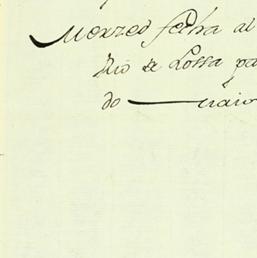 Merzed fecha al
Rio de Lossa pa
do